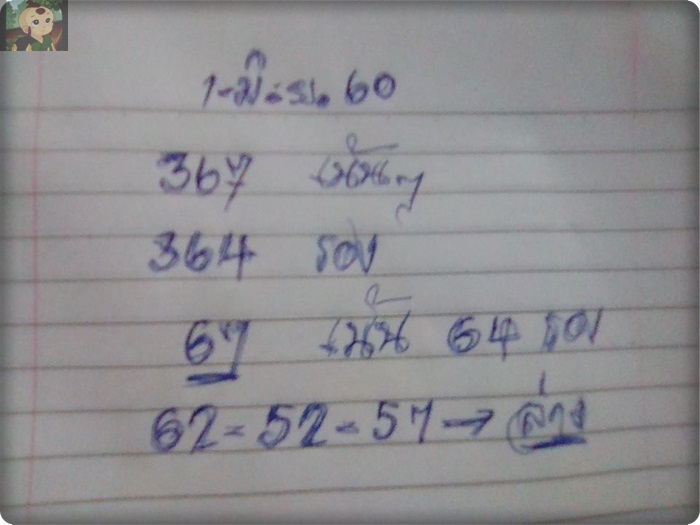 1-มิ.ย. 60
367 เน้นๆ
364 รอง
67 เน้น 64 รอง
62-52-57→ล่าง